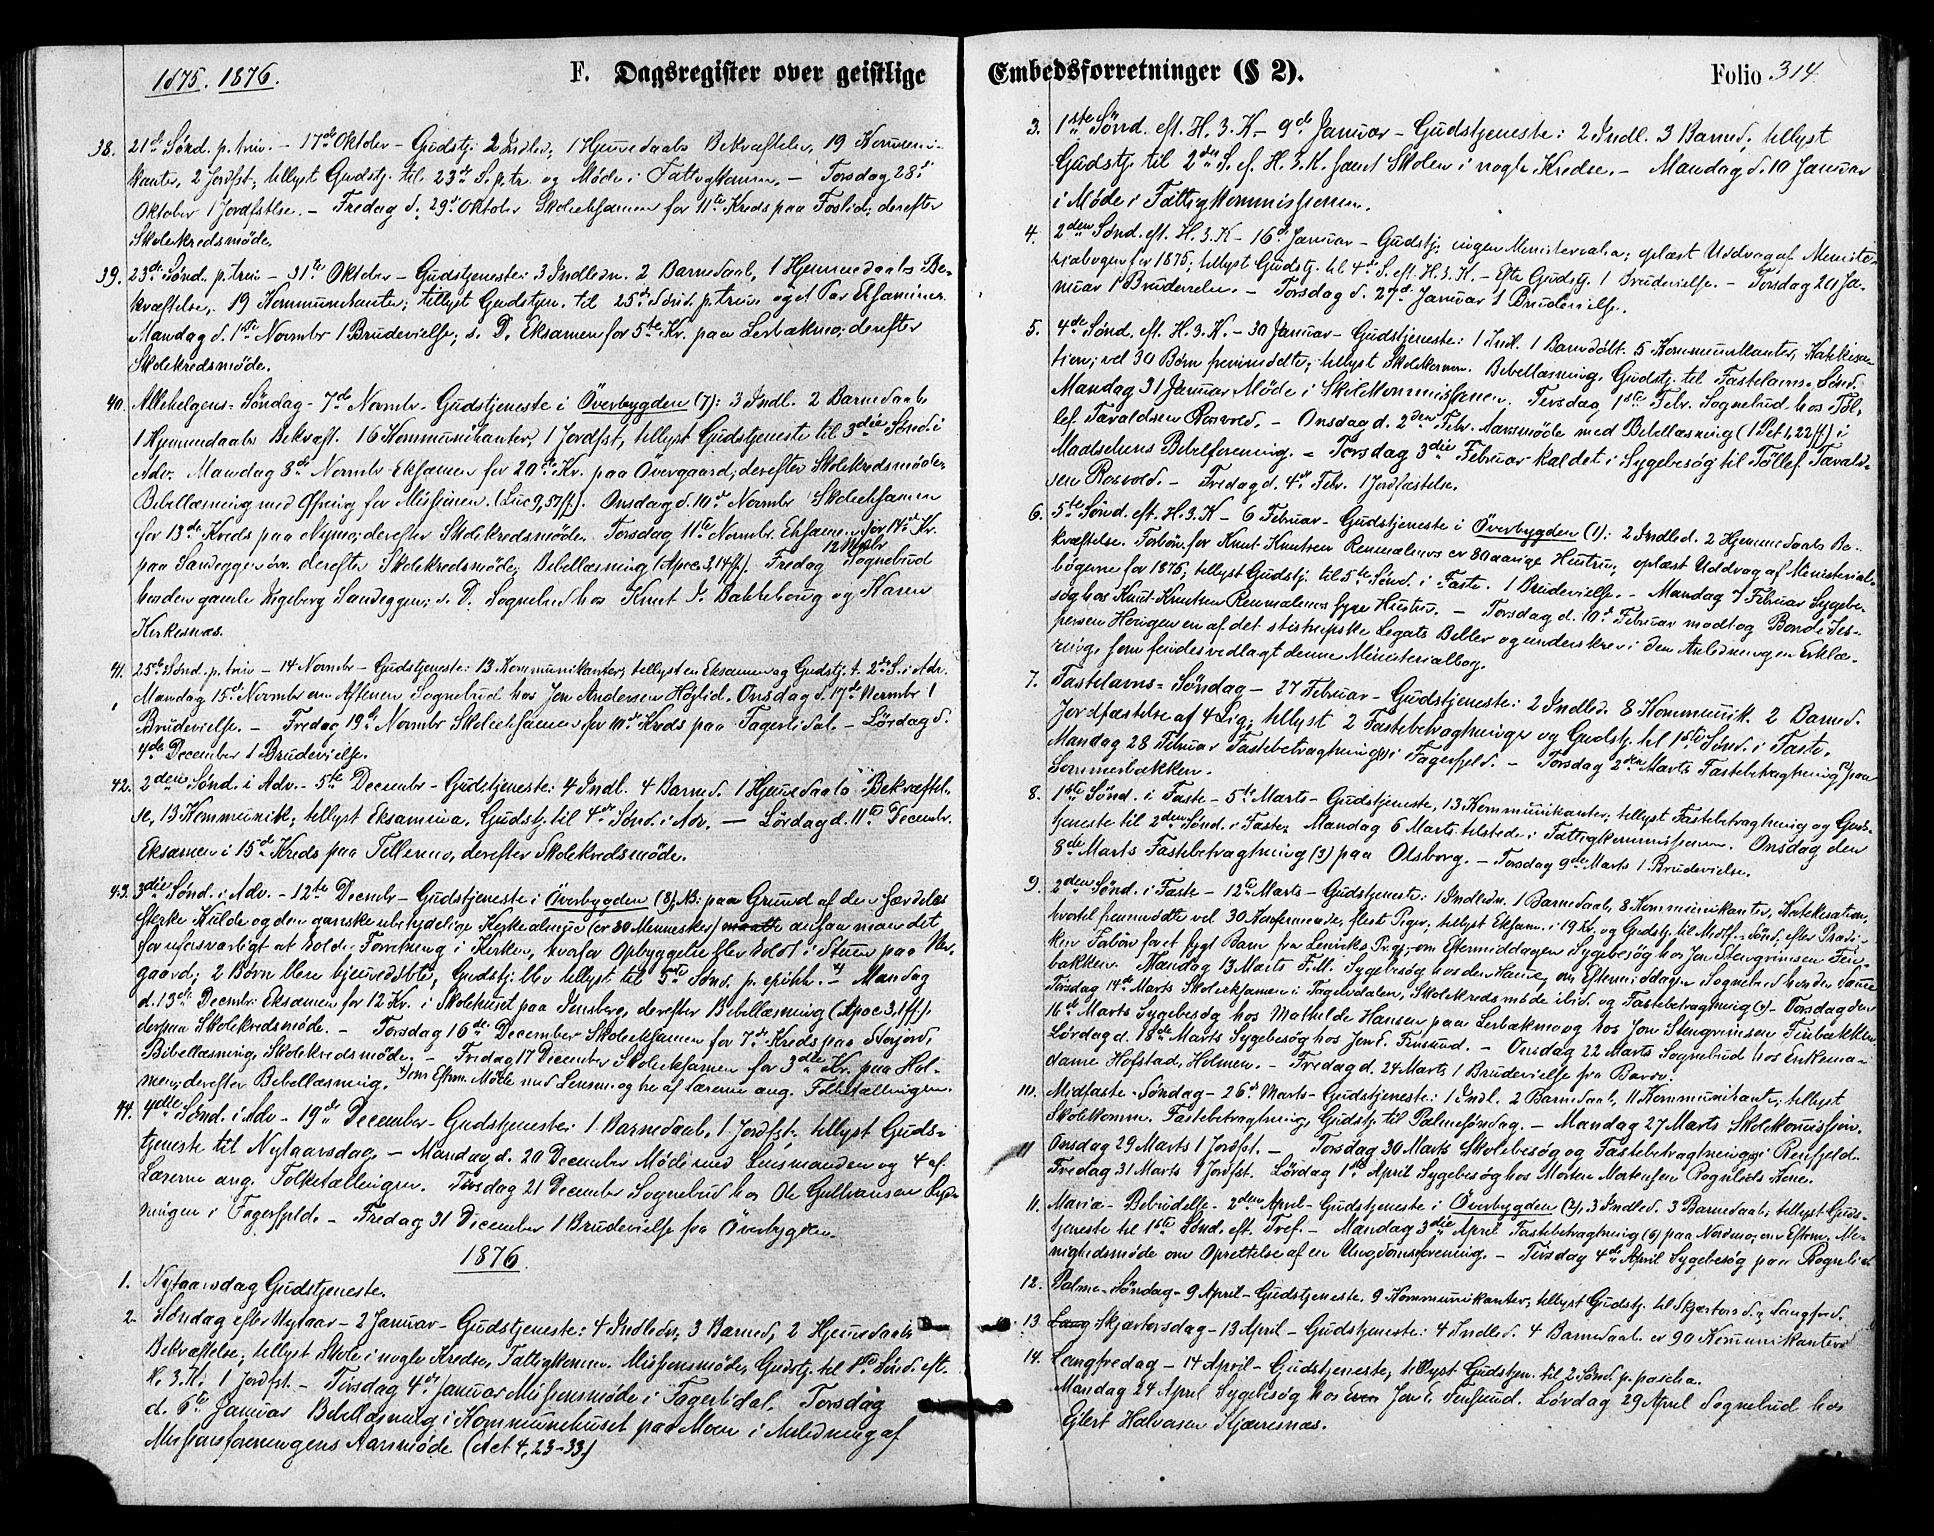 1875. 1876.
F. Dagsregister over geistlige
38. 21de Sønd. p. trin. – 17de Oktober – Gudstj: 2 Indled; 1 Hjemmedaabs Bekræftelse, 19 Kommuni-
kanter, 2 Jordfst; tillyst Gudstj. til 23de S. p. tr. og Møde i Fattigkomm. – Torsdag 28de
Oktober 1 Jordfstlse. – Fredag d. 29de Oktober Skoleeksamen for 11te Kreds paa Foslid; derefter
Skolekredsmøde.
39. 23de Sønd. p. trin – 31te Oktober – Gudstjeneste: 3 Indledn. 2 Barnedaab, 1 Hjemmedaabs Be-
kræftelse, 19 Kommunikanter; tillyst Gudstjen. til 25de Sønd. p. trin og et Par Eksaminer.
Mandag d. 1ste Novembr 1 Brudevielse; s. D. Eksamen for 5te Kr. paa Lerbækmo; derefter
Skolekredsmøde.
40. Allehelgens-Søndag – 7de Novmbr – Gudstjeneste i Överbygden (7): 3 Indl. 2 Barnedaab
1 Hjemmedaabs Bekræft. 16 Kommunikanter, 1 Jordfst, tillyst Gudstjeneste til 3die Sønd. i
Adv. Mandag 8de Novmbr Eksamen for 20de Kr. paa Övergaard, derefter Skolekredsmøde,
Bibellæsning med Offring for Missionen. (Luc 9,57ff). Onsdag d. 10de Novmbr Skoleeksamen
for 13de Kreds paa Nymo; derefter Skolekredsmøde. Torsdag 11te Novmbr Eksamen for 14de Kr.
paa Sandeggen, derefter Skolekredsmøde, Bibellæsning (Apoc 3,14ff). Fredag 12 Nvbr Sognebud
hos den gamle Ingeborg Sandeggen; s. D. Sognebud hos Knut J. Bakkehaug og Karen
Kirkesnæs.
41. 25de Sønd. p. trin – 14 Novmbr – Gudstjeneste: 13 Kommunikanter, tillyst en Eksamen og Gudstj. t. 2den S. i Adv.
Mandag 15de Novmbr om Aftenen Sognebud hos Jon Andersen Høglid. Onsdag d. 17de Novmbr 1
Brudevielse. – Fredag 19de Novmbr Skoleeksamen for 10de Kreds paa Fagerlidal – Lørdag d.
4de December 1 Brudevielse.
42. 2den Sønd. i Adv. – 5te Decembr – Gudstjeneste: 4 Indl. 4 Barned. 1 Hjemmedaabs Bekræftel-
se, 13 Kommunik; tillyst Eksamina, Gudstj. til 4de Sønd. i Adv. – Lørdag d. 11te Decembr.
Eksamen i 15de Kreds paa Tellermo, derefter Skolekredsmøde.
43. 3die Sønd. i Adv. – 12te Decmbr – Gudstjeneste i Överbygden (8); NB: paa Grund af den særdeles
stærke Kulde og den ganske ubetydelige Kirkealmue (cr 30 Mennesker) maatte ansaa man det
for uforsvarligt at holde Forretning i Kirken, hvorfor Opbyggelse blev holdt i Stuen paa
gaard; 2 Børn bleve hjemedøbte, Gudstj. blev tillyst til 5te Sønd. p. epiph. – Mandag
d. 13de Decmbr: Eksamen for 12 Kr. i Skolehuset paa Jensberg, derefter Bibellæsning (Apoc 3,1ff),
derpaa Skolekredsmøde. – Torsdag 16de December Skoleeksamen for 7de Kreds paa Storjord,
Bibellæsning, Skolekredsmøde. – Fredag 17 December Skoleeksamen for 3die Kr. paa Hol-
men; derefter Bibellæsning. Eftrm. Møde med Lensm. og tre af Lærerne ang. Folketællingen.
44. 4de Sønd. i Adv – 19de December – Gudstjeneste: 1 Barnedaab, 1 Jordfst: tillyst Guds-
tjeneste til Nytaarsdag. – Mandag d. 20 December Møde med Lensmanden og 4 af
Lærerne ang. Folketællingen. Tirsdag 21 December Sognebud hos Ole Gullvansen
ningen i Fagerfjeld. – Fredag 31 December 1 Brudevielse fra Överbygden.
1876.
1. Nytaarsdag Gudstjeneste.
2. Søndag efter Nytaar – 2 Januar – Gudstjeneste: 4 Indledn, 3 Barned, 2 Hjemmedaabs
Bekræftelse, tillyst Skole i nogle Kredse, Fattigkomm. Missionsmøde, Gudstj. til 1ste Sønd. eft.
H. 3. K.: 1 Jordfst. – Tirsdag 4de Januar Missionsmøde i Fagerlidal. Torsdag
d. 6te Januar Bibellæsning i Kommunehuset paa Moen i Anledning af
Missionsforeningens Aarsmøde (Act 4, 23–33)
Embedsforretninger (§ 2).
Folio 314
3. 1ste Sønd. eft. H. 3. K – 9de Januar – Gudstjeneste: 2 Indl. 3 Barned. tillyst
Gudstj. til 2den S. ef. H. 3. K. samt Skolen i nogle Kredse. – Mandag d. 10 Januar
i Møde i Fattigkommissionen.
4. 2den Sønd. eft. H. 3. K – 16de Januar – Gudstj; ingen Ministerialia; oplæst Uddrag af Ministe-
rialbogen for 1875; tillyst Gudstj. til 4de S. eft. H. 3. K. – Efter Gudstj. 1 Brudevielse. – Torsdag 20 Ja-
nuar 1 Brudevielse. – Torsdag d. 27de Januar 1 Brudevielse.
5. 4de Sønd. eft. H. 3. K. – 30 Januar – Gudstjeneste: 1 Indl. 1 Barn døbt. 5 Kommunikanter, Katekisa-
tion; vel 30 Børn fremmødte; tillyst Skolekomm. Bibellæsning, Gudstj. til Fastelavns-Sønd.
Mandag 31 Januar Møde i Skolekommissionen. Tirsdag 1ste Febr. Sognebud hos Tøl-
lef Tavaldsen Rosvold. – Onsdag d. 2den Febr. Aarsmøde med Bibellæsning (1 Pet 1,22ff) i
Maalselvens Bibelforening. – Torsdag 3die Februar kaldet i Sygebesøg til Tøllef Tavald-
sen Rosvold. – Fredag d. 4de Febr. 1 Jordfæstelse.
6. 5te Sønd. eft. H. 3. K – 6 Februar – Gudstjeneste i Överbygden (1): 2 Indled. 2 Hjemmedaabs Be-
kræftelse. Forbøn for Knut Knutsen Renmælmos cr 80 aarige Hustru; oplæst Uddrag af Ministerial-
bøgerne for 1875; tillyst Gudstj. til 5te Sønd. i Faste. 1 Brudevielse. – Mandag 7 Februar Sygebe-
søg hos Knut Knutsen Renmælmos syge Hustru. – Torsdag d. 10de Februar modtog Bonde Jes-
persen Hougen en af det stistrupske Legats Bibler og underskrev i den Anledning en Erklæ-
ring, som findes vedlagt denne Ministerialbog.
7. Fastelavns-Søndag – 27 Februar – Gudstjeneste: 2 Indled. 8 Kommunik. 2 Barned.
Jordfæstelse af 4 Lig; tillyst 2 Fastebetragtninger og Gudstj. til 1ste Sønd. i Faste.
Mandag 28 Februar Fastebetragtning (1) i Fagerfjeld. – Torsdag 2den Marts Fastebetragtning (2) paa
Sommerbakken.
8. 1ste Sønd. i Faste – 5te Marts – Gudstjeneste, 13 Kommunikanter; tillyst Fastebetragtning og Guds-
tjeneste til 2den Sønd. i Faste; Mandag 6 Marts tilstede i Fattigkommissionen. Onsdag den
8de Marts Fastebetragtning (3) paa Olsborg. – Torsdag 9de Marts 1 Brudevielse.
9. 2den Sønd. i Faste – 12te Marts – Gudstjeneste: 1 Indledn. 1 Barnedaab, 8 Kommunikanter, Katekisation,
hvortil fremmødte vel 30 Konfirmerede, flest Piger, tillyst Eksam. i 19 Kr, og Gudstj. til Midf.-Sønd, efter Prædi-
ken Forbøn for et sygt Barn fra om Eftermiddagen Sygebesøg hos Jon Stengrimsen Fin-
bakken. Mandag 13 Marts F.M. Sygebesøg hos den Samme, om Eftermiddagen Sognebud hos den Samme
Tirsdag 14de Marts Skoleeksamen i Fagerlidalen, Skolekredsmøde ibid. og Fastebetragtning (4) – Torsdag den
16de Marts Sygebesøg hos Mathilde Hansen paa Lerbækmo og hos Jon Stengrimsen Finbakken
Lørdag d. 18de Marts Sygebesøg hos Jon E. Fusund. – Onsdag 22 Marts Sognebud hos Enkema-
dame Hofstad, Holmen. – Fredag d. 24 Marts 1 Brudevielse fra Bardo.
10. Midfaste-Søndag – 26de Marts – Gudstjeneste: 1 Indl. 2 Barnedaab, 11 Kommunikant; tillyst
Skolekomm. Fastebetragtning, Gudstj. til Palmesøndag. – Mandag 27 Marts Skolekommission.
11 Onsdag 29 Marts 1 Jordfst. – Torsdag 30 Marts Skolebesøg og Fastebetragtning (5) i Rensjeld.
Fredag 31 Marts 1 Jordfst. Lørdag 1ste April Sygebesøg hos Morten Mortensen Rognlids Kone.
11. Mariæ-Bebudelse – 2den April – Gudstjeneste i Överbygden (2), 3 Indled. 3 Barnedaab; tillyst Guds-
tjeneste til 1ste Sønd. eft. Tref. – Mandag 3die April Fastebetragtning (6) paa Nordmo; om Eftrm. Me-
nighedsmøde om Oprettelse af en Ungdomsforening. – Tirsdag 4de April Sygebesøg paa Rognlid
12. Palme-Søndag – 9 April – Gudstjeneste. 9 Kommunikanter; tillyst Gudstj. til Skjærtorsd. & Langfred.
13. Lang Skjærtorsdag – 13 April – Gudstjeneste: 4 Indled. 4 Barnedaab. cr 90 Kommunikanter
14. Langfredag – 14 April – Gudstjeneste, tillyst Gudstjen. til 2 Sønd. p. pascha.
Mandag 24 April Sygebesøg hos Even Jon E. Fusund. Lørdag 29 April Sognebud hos
Eilert Halvasen Kjærresnæs.